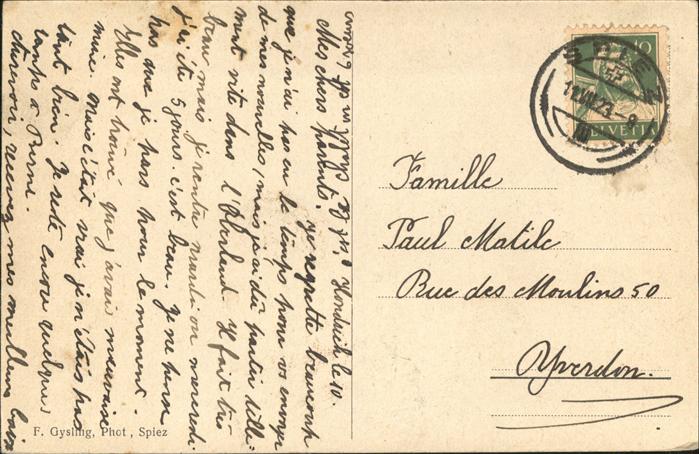 Hondrich le 10.
Mes chers parents. Je regrette beaucoup
que je n'ai pas eu le temps pour vs envoyer
de mes nouvelles, mais j'ai dû partir telle-
ment vite dans l'Oberland. Il fait très
beau mais je rentre mardi ou mercredi
j'ai été 5 jours. c'est beau. Je ne pense
pas que je pars pour le moment.
Elles ont trouvé que j'avais mauvaise
mine. Mais c'était vrai je n'étais pas
tant bien. Je reste encore quelques
temps à Berne.
chs revoir, recevez mes meilleurs bais
F. Gysling, Phot, Spiez
SPIEZ
11.VIII.23.-8
III
10
HELVETIA
Famille
Paul Matile
Rue des Moulins 50
Yverdon.